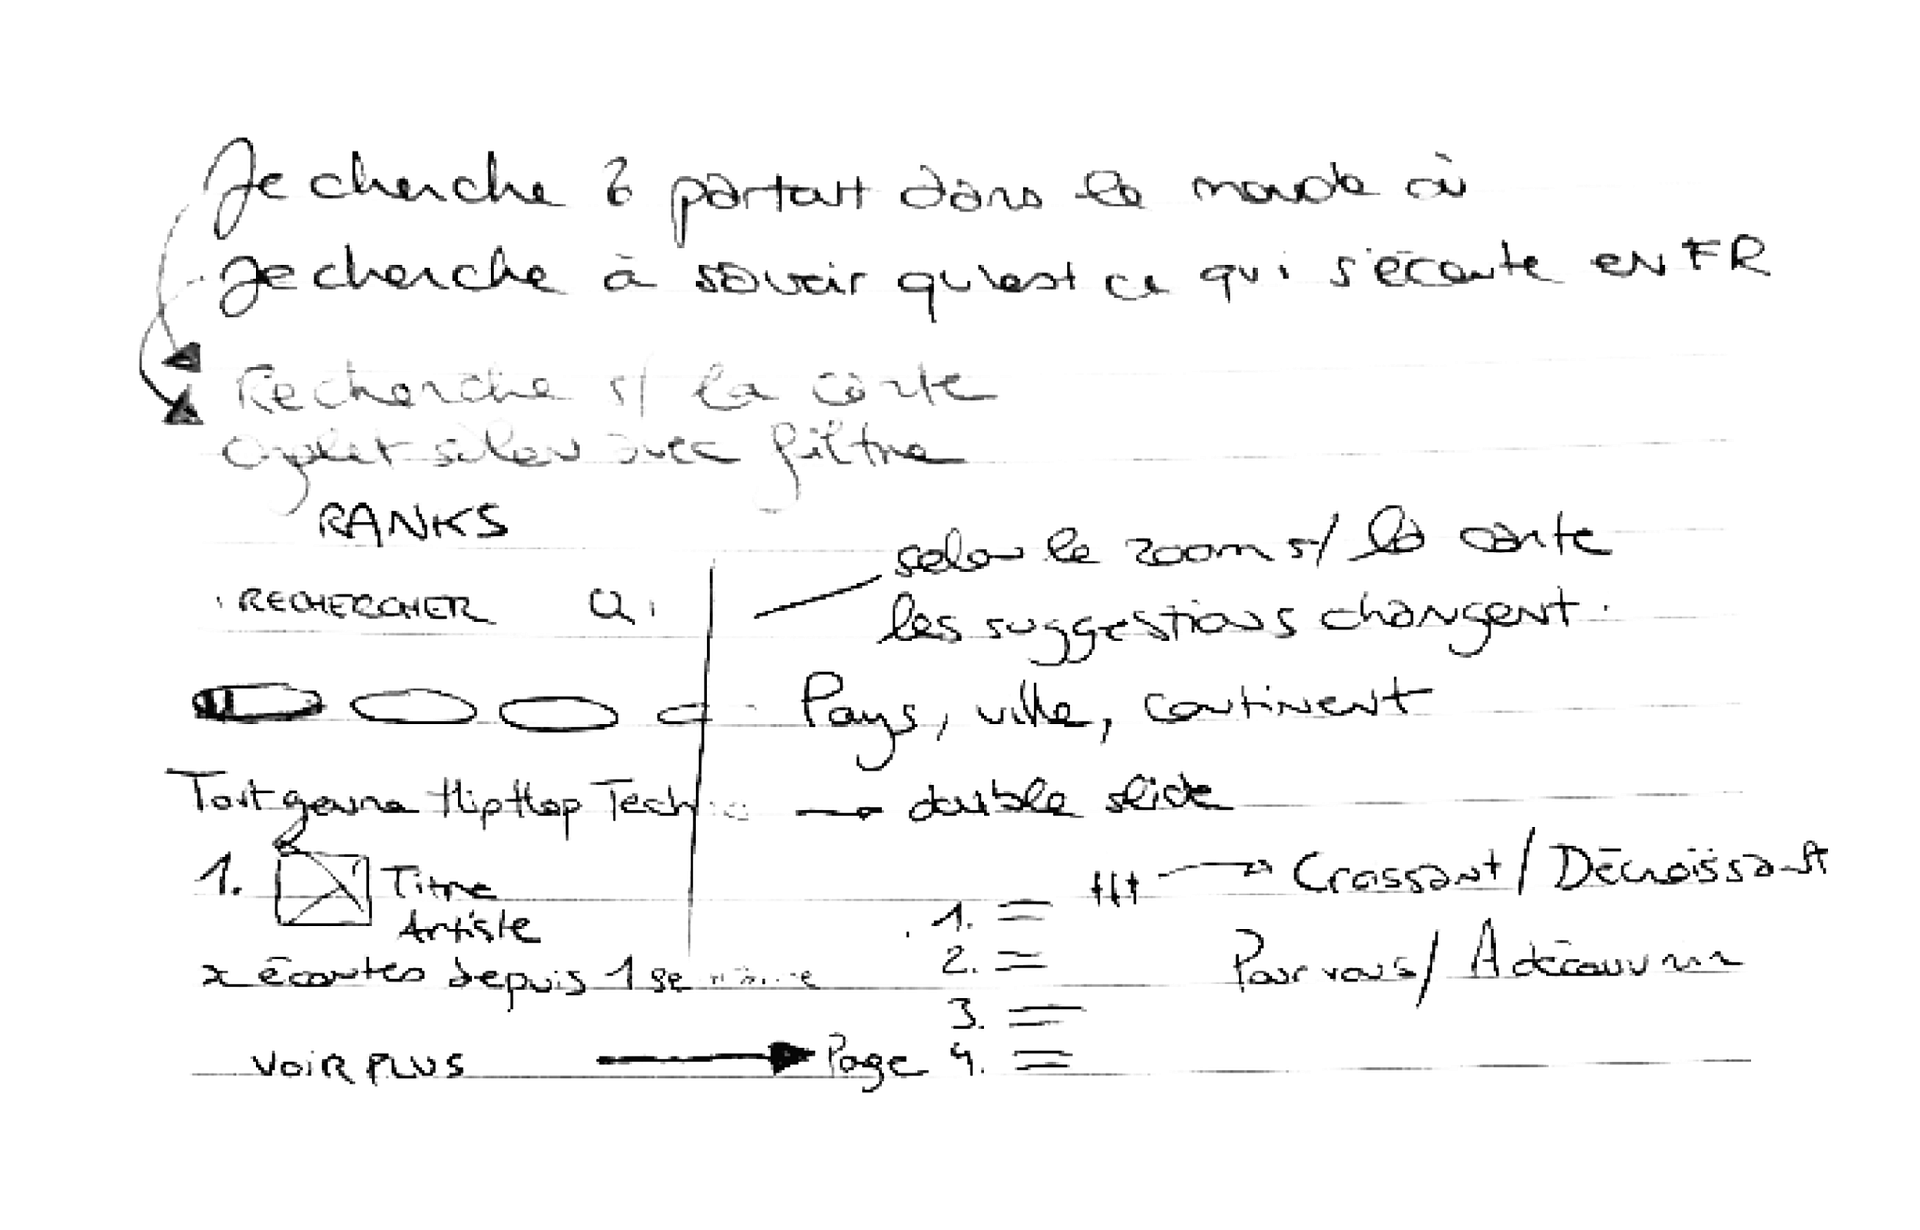 Je cherche à partout dans le monde où
Je cherche à savoir qu'est ce qui s'écoute EN FR
Recherche s/ la carte
avec filtre
RANKS
selon le zoom s/ la carte
RECHERCHER
les suggestions changent.
Pays, ville, continent
Tout genre HipHop Techno → double slide
1. Titre
Artiste
→ Croissant / Décroissant
1. =
2. =
Pour vous / A découvrir
x écoutes depuis 1 semaine
3. =
VOIR PLUS → Page 4. =